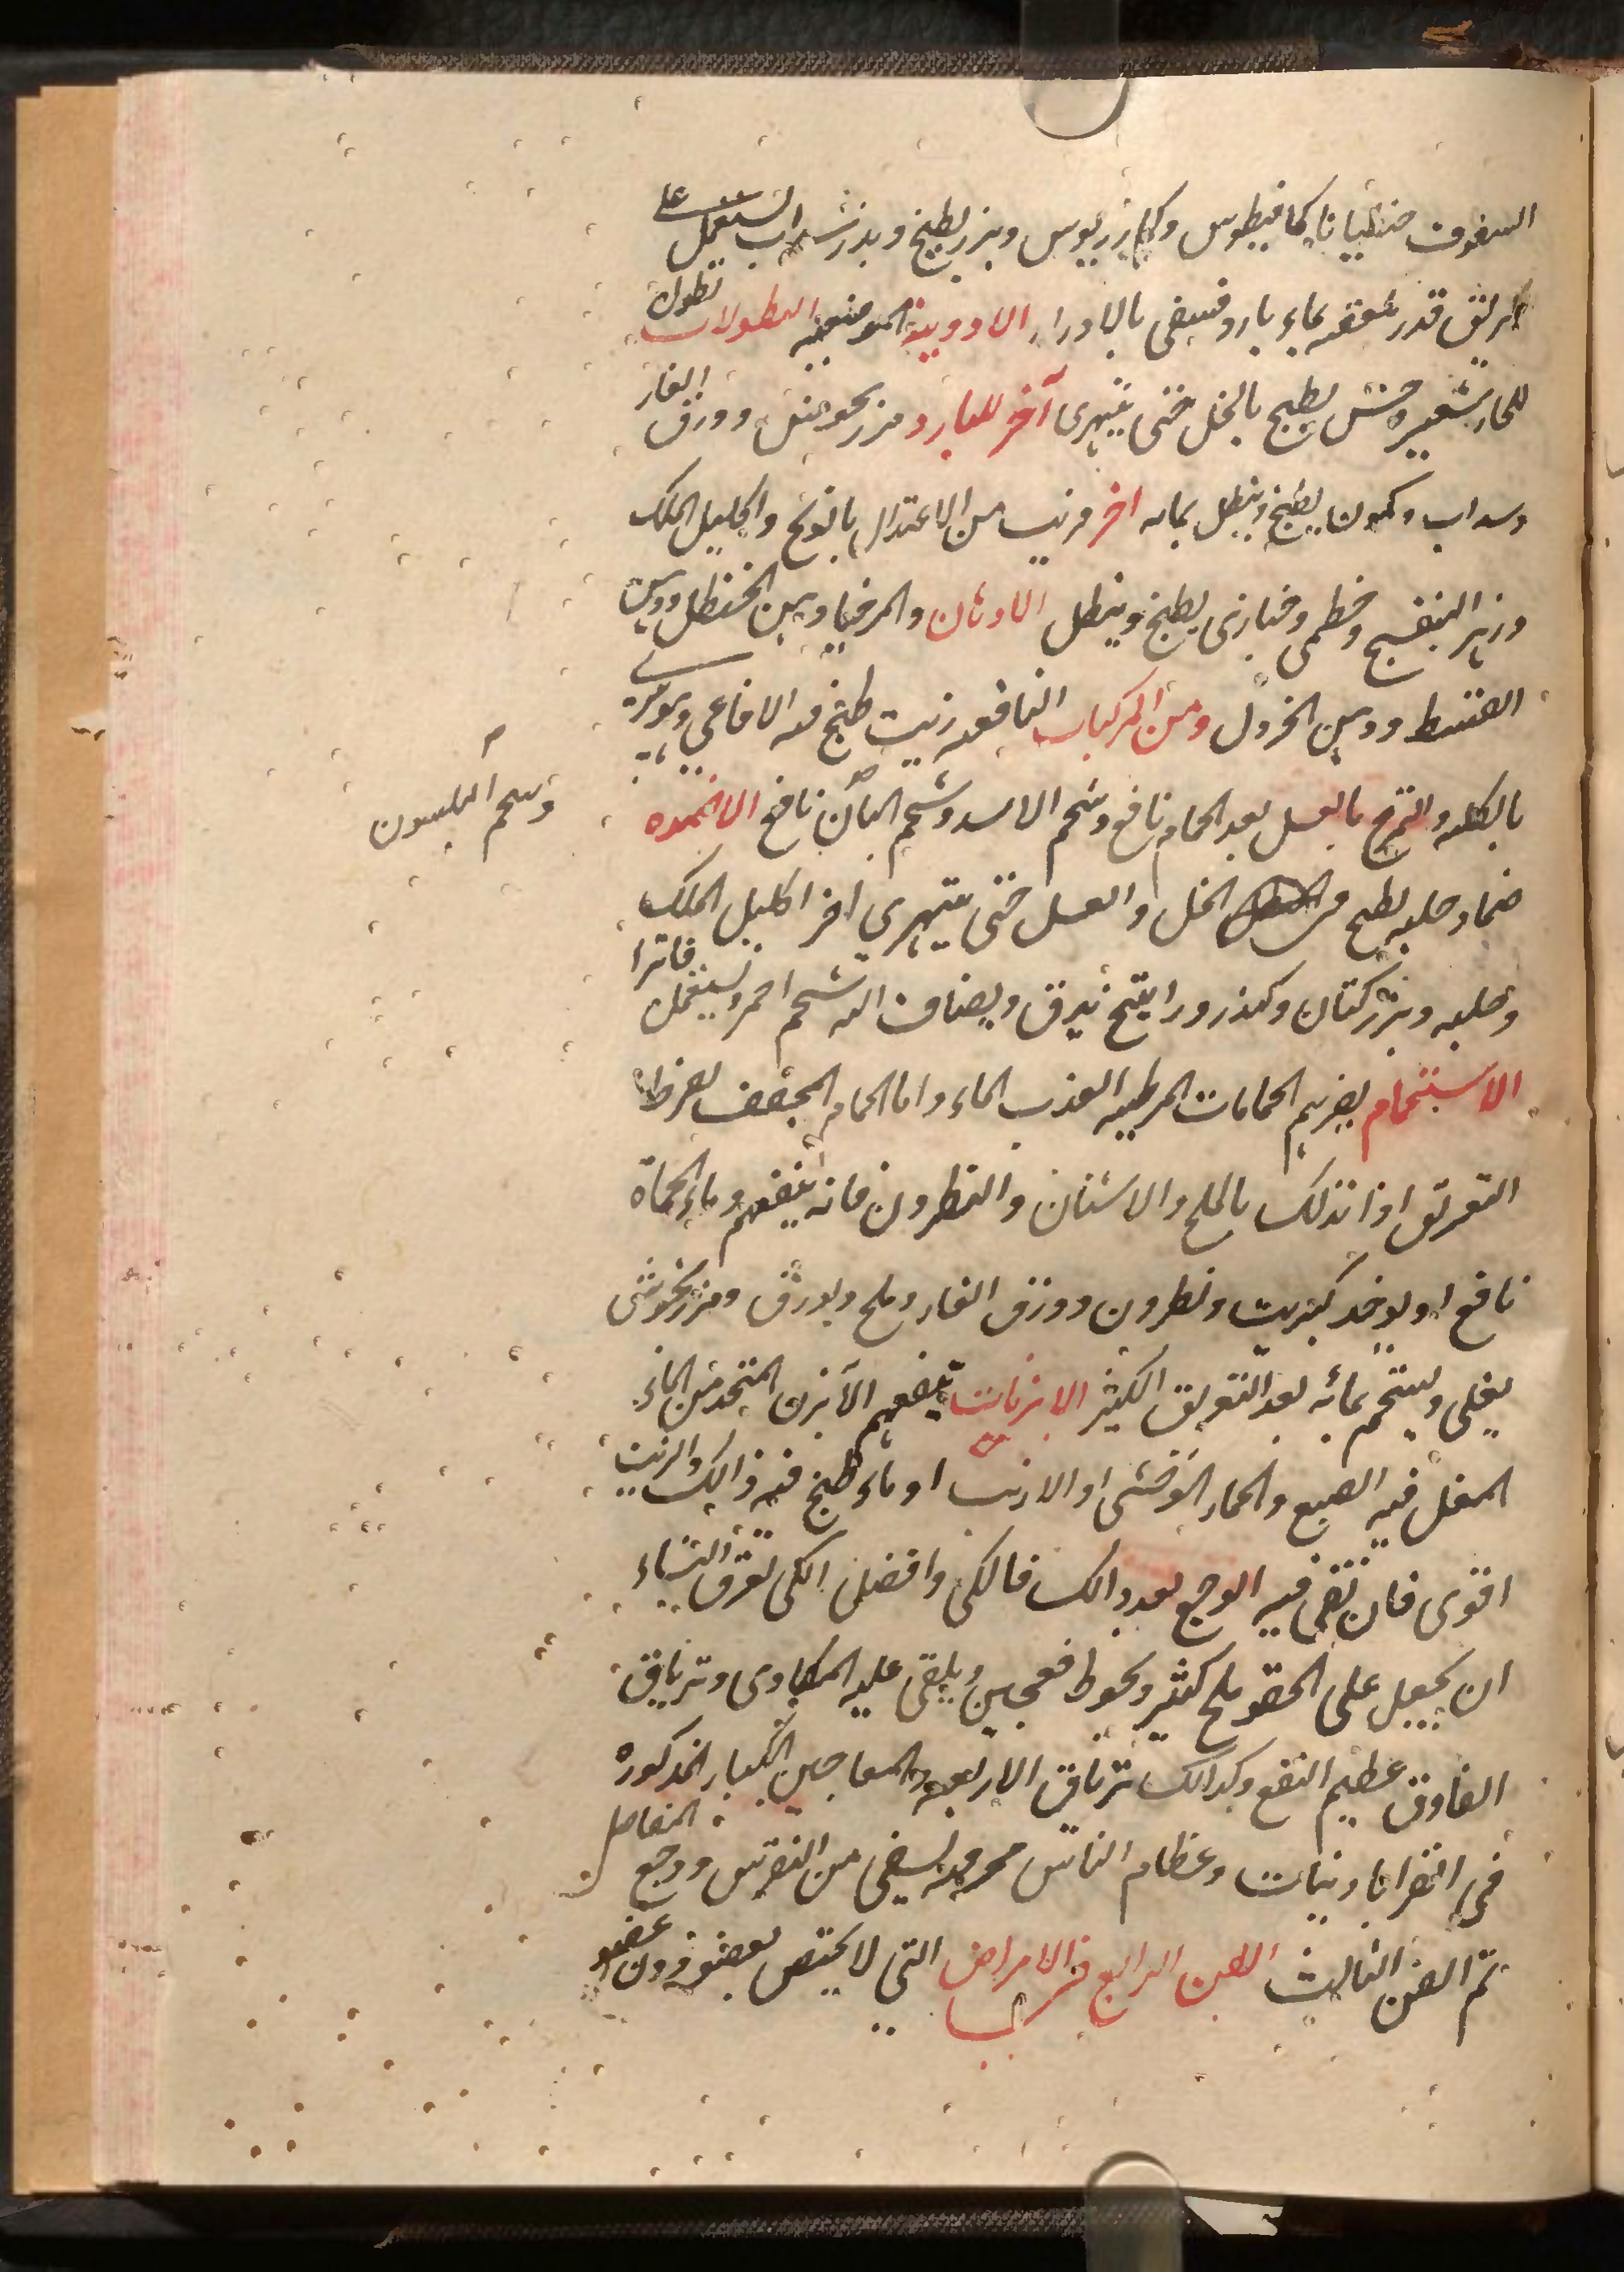 السفوف جنطيانا كمافيطوس وكمازريوس وبزر بطيخ وبذر سداب يستعمل على
الريق قدر ملعقه بماء بارد فيسقى بالادرار الادوية الموضعيه النطولات نطول
للحار شعير وخش يطبخ بالخل حتى يتهرى آخر للبارد مزرنجوش وورق الغار
وسداب وكمون يطبخ وينطل بمائه اخر قريب من الاعتدال بابونج واكليل الملك
وزهر البنفسج وخطمى وخبازى يطبخ وينطل الادهان والمروخيا دهن الحنظل ودهن
القسط ودهن الخردل ومن المركبات النافعه زيت طبخ فيه الافاعي ويبرئ
بالكليه والتمريخ بالعسل بعد الحمام نافع وشحم الاسد وشحم البان نافع الاضمده
وشحم البلسون
ضماد حلبه يطبخ في الخل والعسل حتى يتهرى اخر اكليل الملك
وحلبه وبزر كتان وكندر وراتينج يدق ويضاف اليه شحم احمر ويستعمل فاترا
الاستحمام يضرهم الحمامات المرطبه العذب الماء واما الحمام المجفف لفرط
التعريق اذا تدلك بالملح والاشنان والنطرون فانه ينفعهم وماء الحماة
نافع او يوخذ كبريت ونطرون وورق الغار وملح وبورق ومزرنجوش
يغلى ويستحم بمائه بعد التعريق الكثير الابزنات ينفعهم الآبزن المتخذ من الماء
المغلى فيه الضبع والحمار الوحشى او الارنب او ماء طبخ فيه ذالك والزيت
اقوى فان بقى فيه الوجع بعد ذالك فالكى وافضل الكى لعرق النساء
ان يجعل على الحقو ملح كثير ويحوط فعجين ويلقى عليه المكاوى وترياق
الفاروق عظيم النفع وكذالك ترياق الاربعه والمعاجين الكبار المذكوره
في القراباذينات وعظام الناس محرقه يسقى من النقرس ووجع المفاصل
تم الفن الثالث الفن الرابع في الامراض التي لا يختص بعضو دون عضو